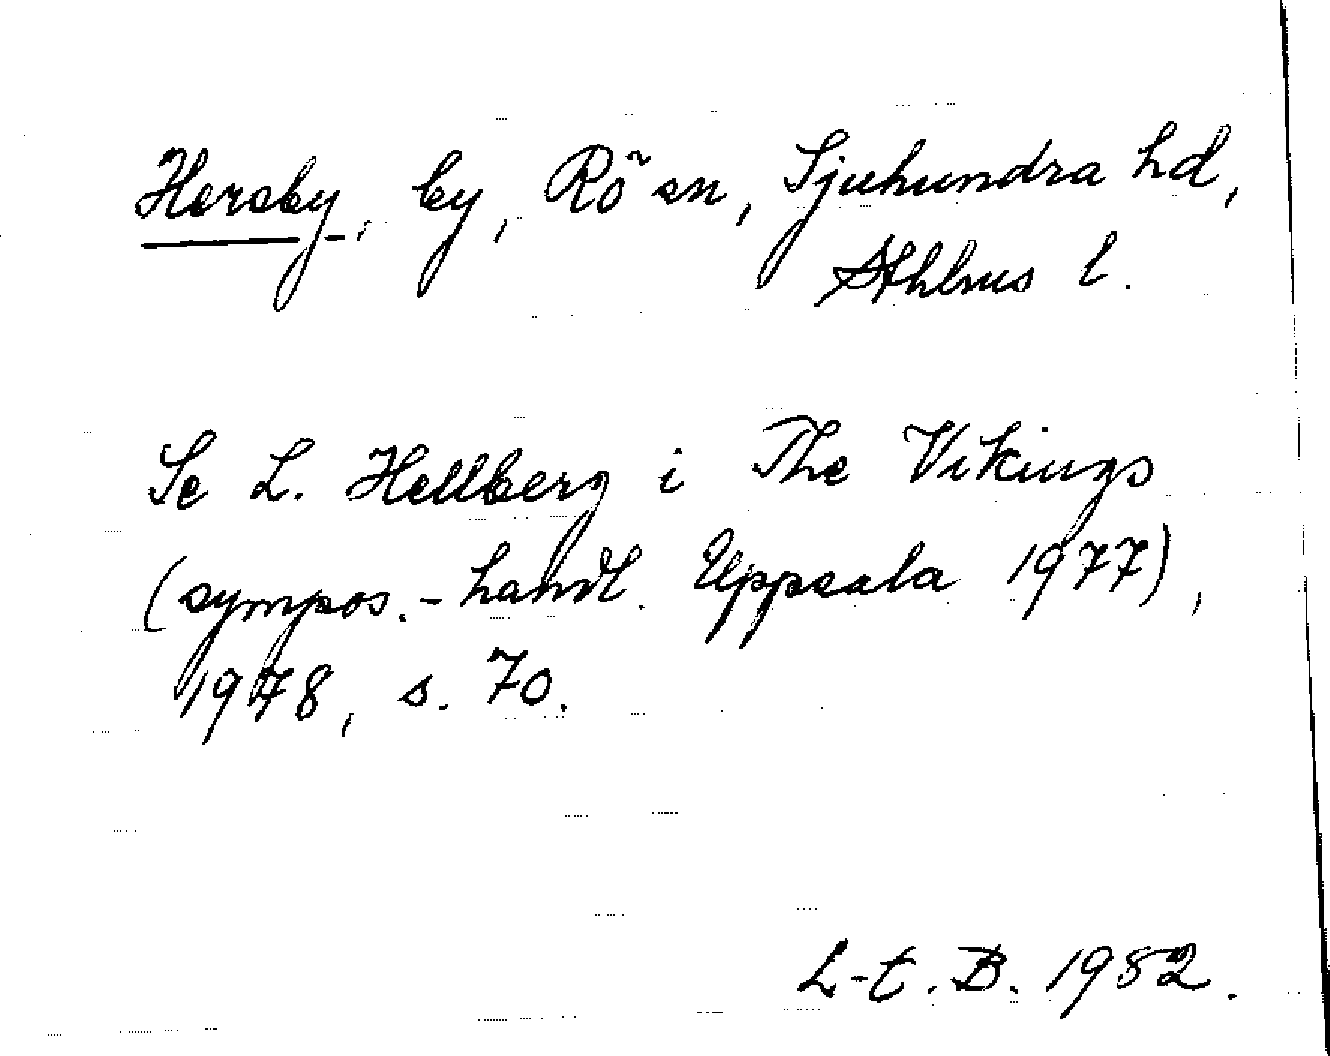 Hersby, by, Rö sn, Sjuhundra hd,
Sthlms l.
Se L. Hellberg i The Vikings
(sympos.-handl. Uppsala 1977),
1978, s. 70.
L-t. B. 1982.